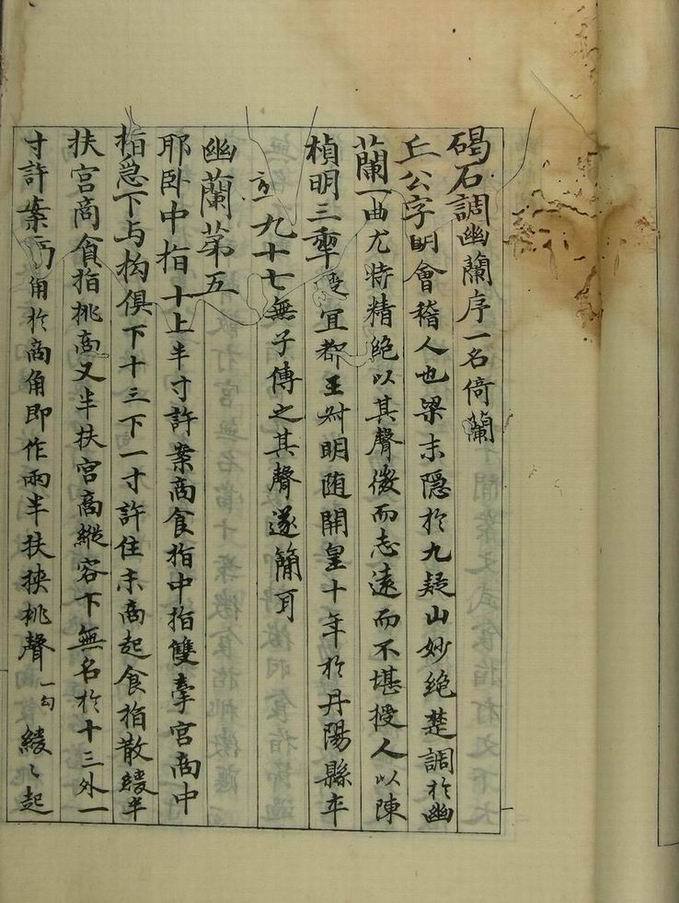 碣石調幽蘭序一名倚蘭
丘公字明會稽人也梁末隱於九疑山妙絕楚調於幽
蘭一曲尤特精絕以其聲微而志遠而不堪授人以陳
禎明三年授宜都王叔明随開皇十年於丹陽縣卒
九十七無子傳之其聲遂簡耳
幽蘭苐五
耶卧中指十上半寸許案商食指中指雙牽宮商中
指急下与拘俱下十三下一寸許住末商起食指散緩半
扶宮商食指挑商又半扶宮商縱容下無名於十三外一
寸許案商角於商角即作兩半扶挾挑聲一句緩〻起